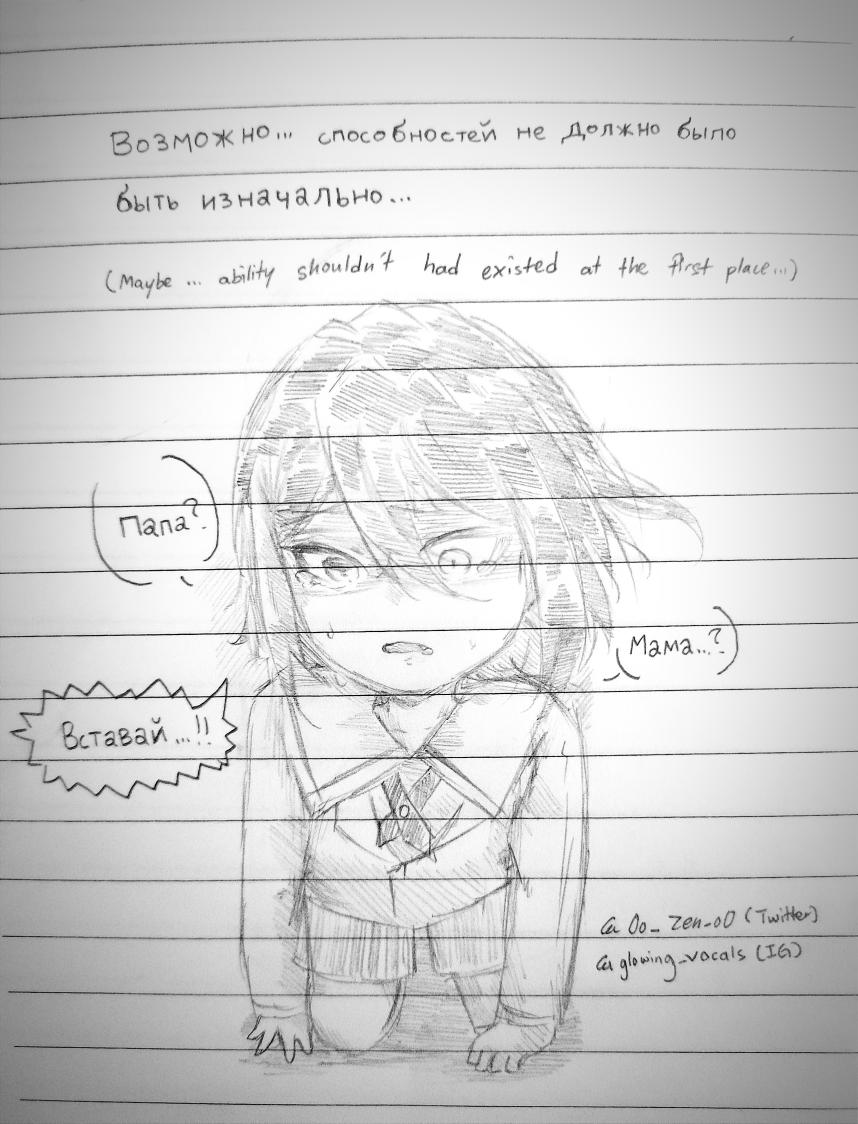 Возможно... способностей не должно было
быть изначально...
(Maybe ... ability shouldn't had existed at the first place...)
Папа?
Мама..?
Вставай...!!
@ Oo_Zen_oO (Twitter)
@glowing_vocals (IG)